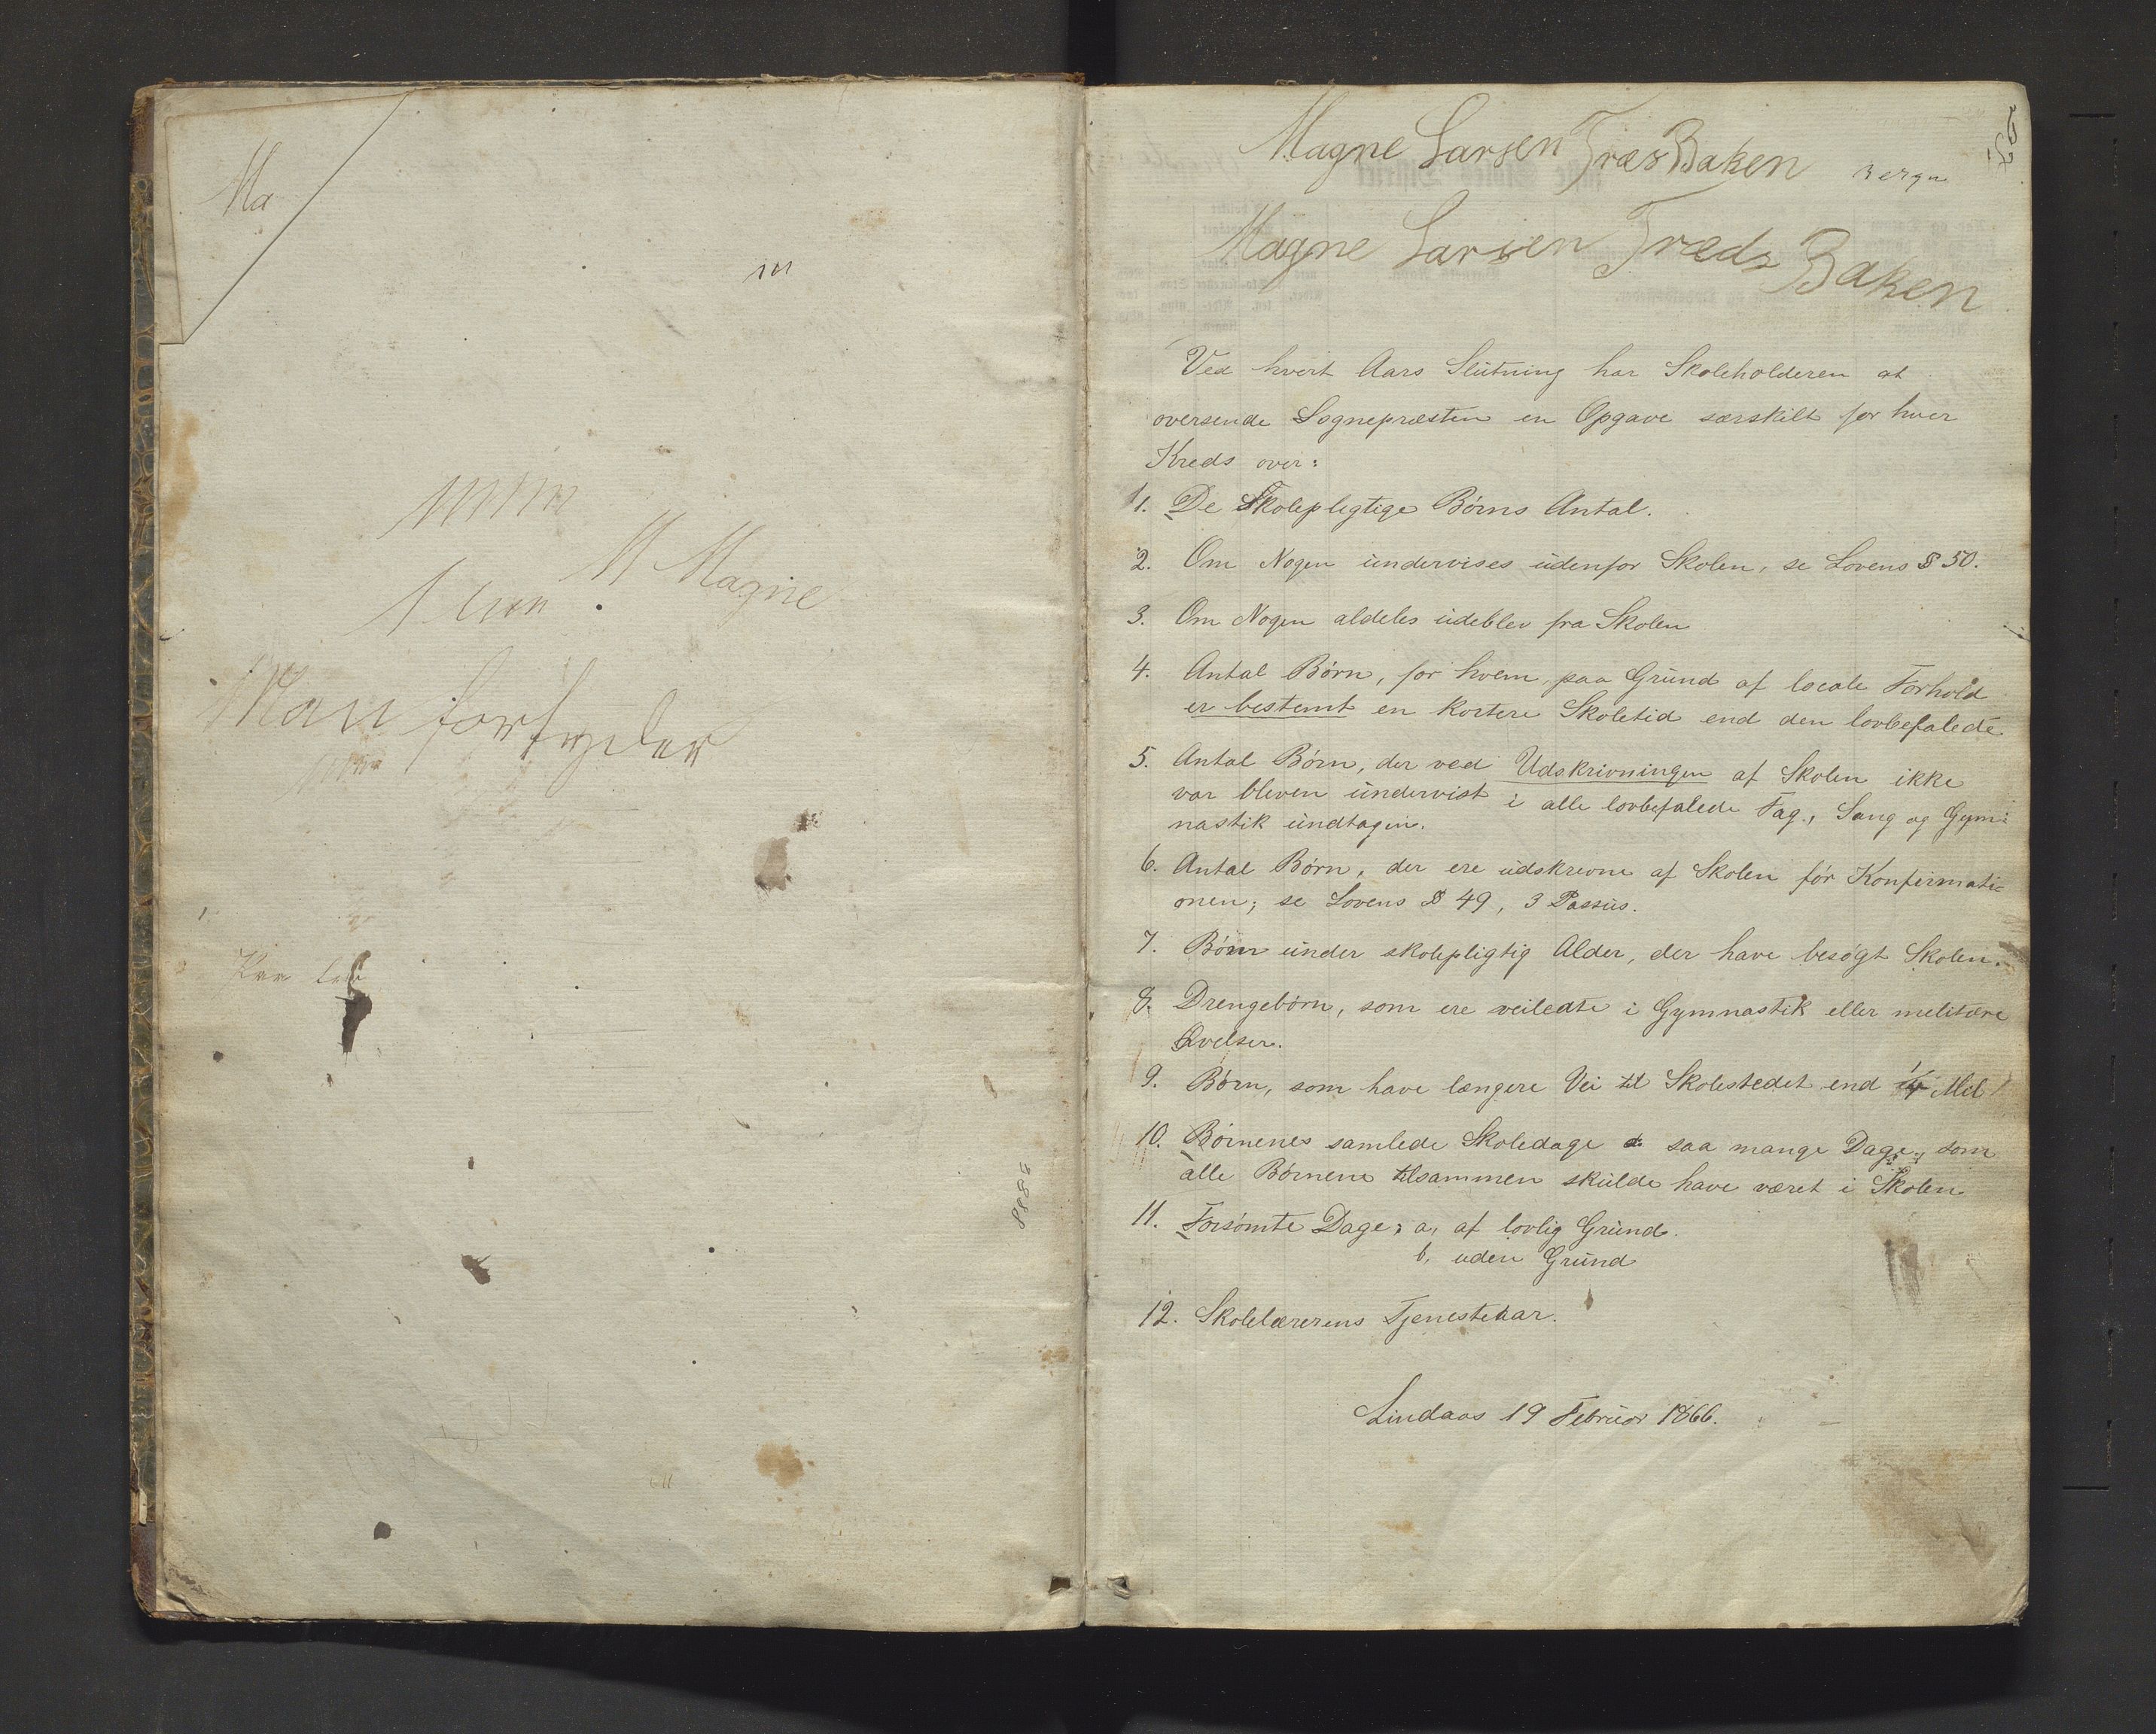 Ma
m
mmm
M Magne
Man forfyder
8888
Magne Larsen Træs Baken Bergn
Magne Larsen Træds Baken
Ved hvert Aars Slutning har Skoleholderen at
oversende Sognepræsten en Opgave særskilt for hver
Kreds over:
1. De Skolepligtige Børns Antal.
2. Om Nogen undervises udenfor Skolen, se Lovens § 50.
3. Om Nogen aldeles udeblev fra Skolen
4. Antal Børn, for hvem, paa Grund af locale Forhold
er bestemt en kortere Skoletid end den lovbefalede
5. Antal Børn, der ved Udskrivningen af Skolen ikke
var bleven undervist i alle lovbefalede Fag, Sang og Gym:
nastik undtagen.
6. Antal Børn, der ere udskrevne af Skolen før Konfirmati=
onen; se Lovens § 49, 3 Passus.
7. Børn under skolepligtig Alder, der have besøgt Skolen.
8. Drengebørn, som ere veiledte i Gymnastik eller melitære
Øvelser.
9. Børn, som have længere Vei til Skolestedet end 1/4 Mil
10. Børnenes samlede Skoledage d: saa mange Dage, som
alle Børnene tilsammen skulde have været i Skolen
11. Forsømte Dage; a, af lovlig Grund.
b, uden Grund
12. Skolelærerens Tjenesteaar.
Lindaas 19 Februar 1866.